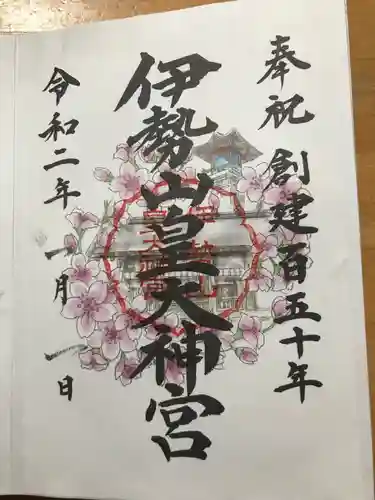 奉祝 創建百五十年
伊勢山皇大神宮
令和二年 一月 一日